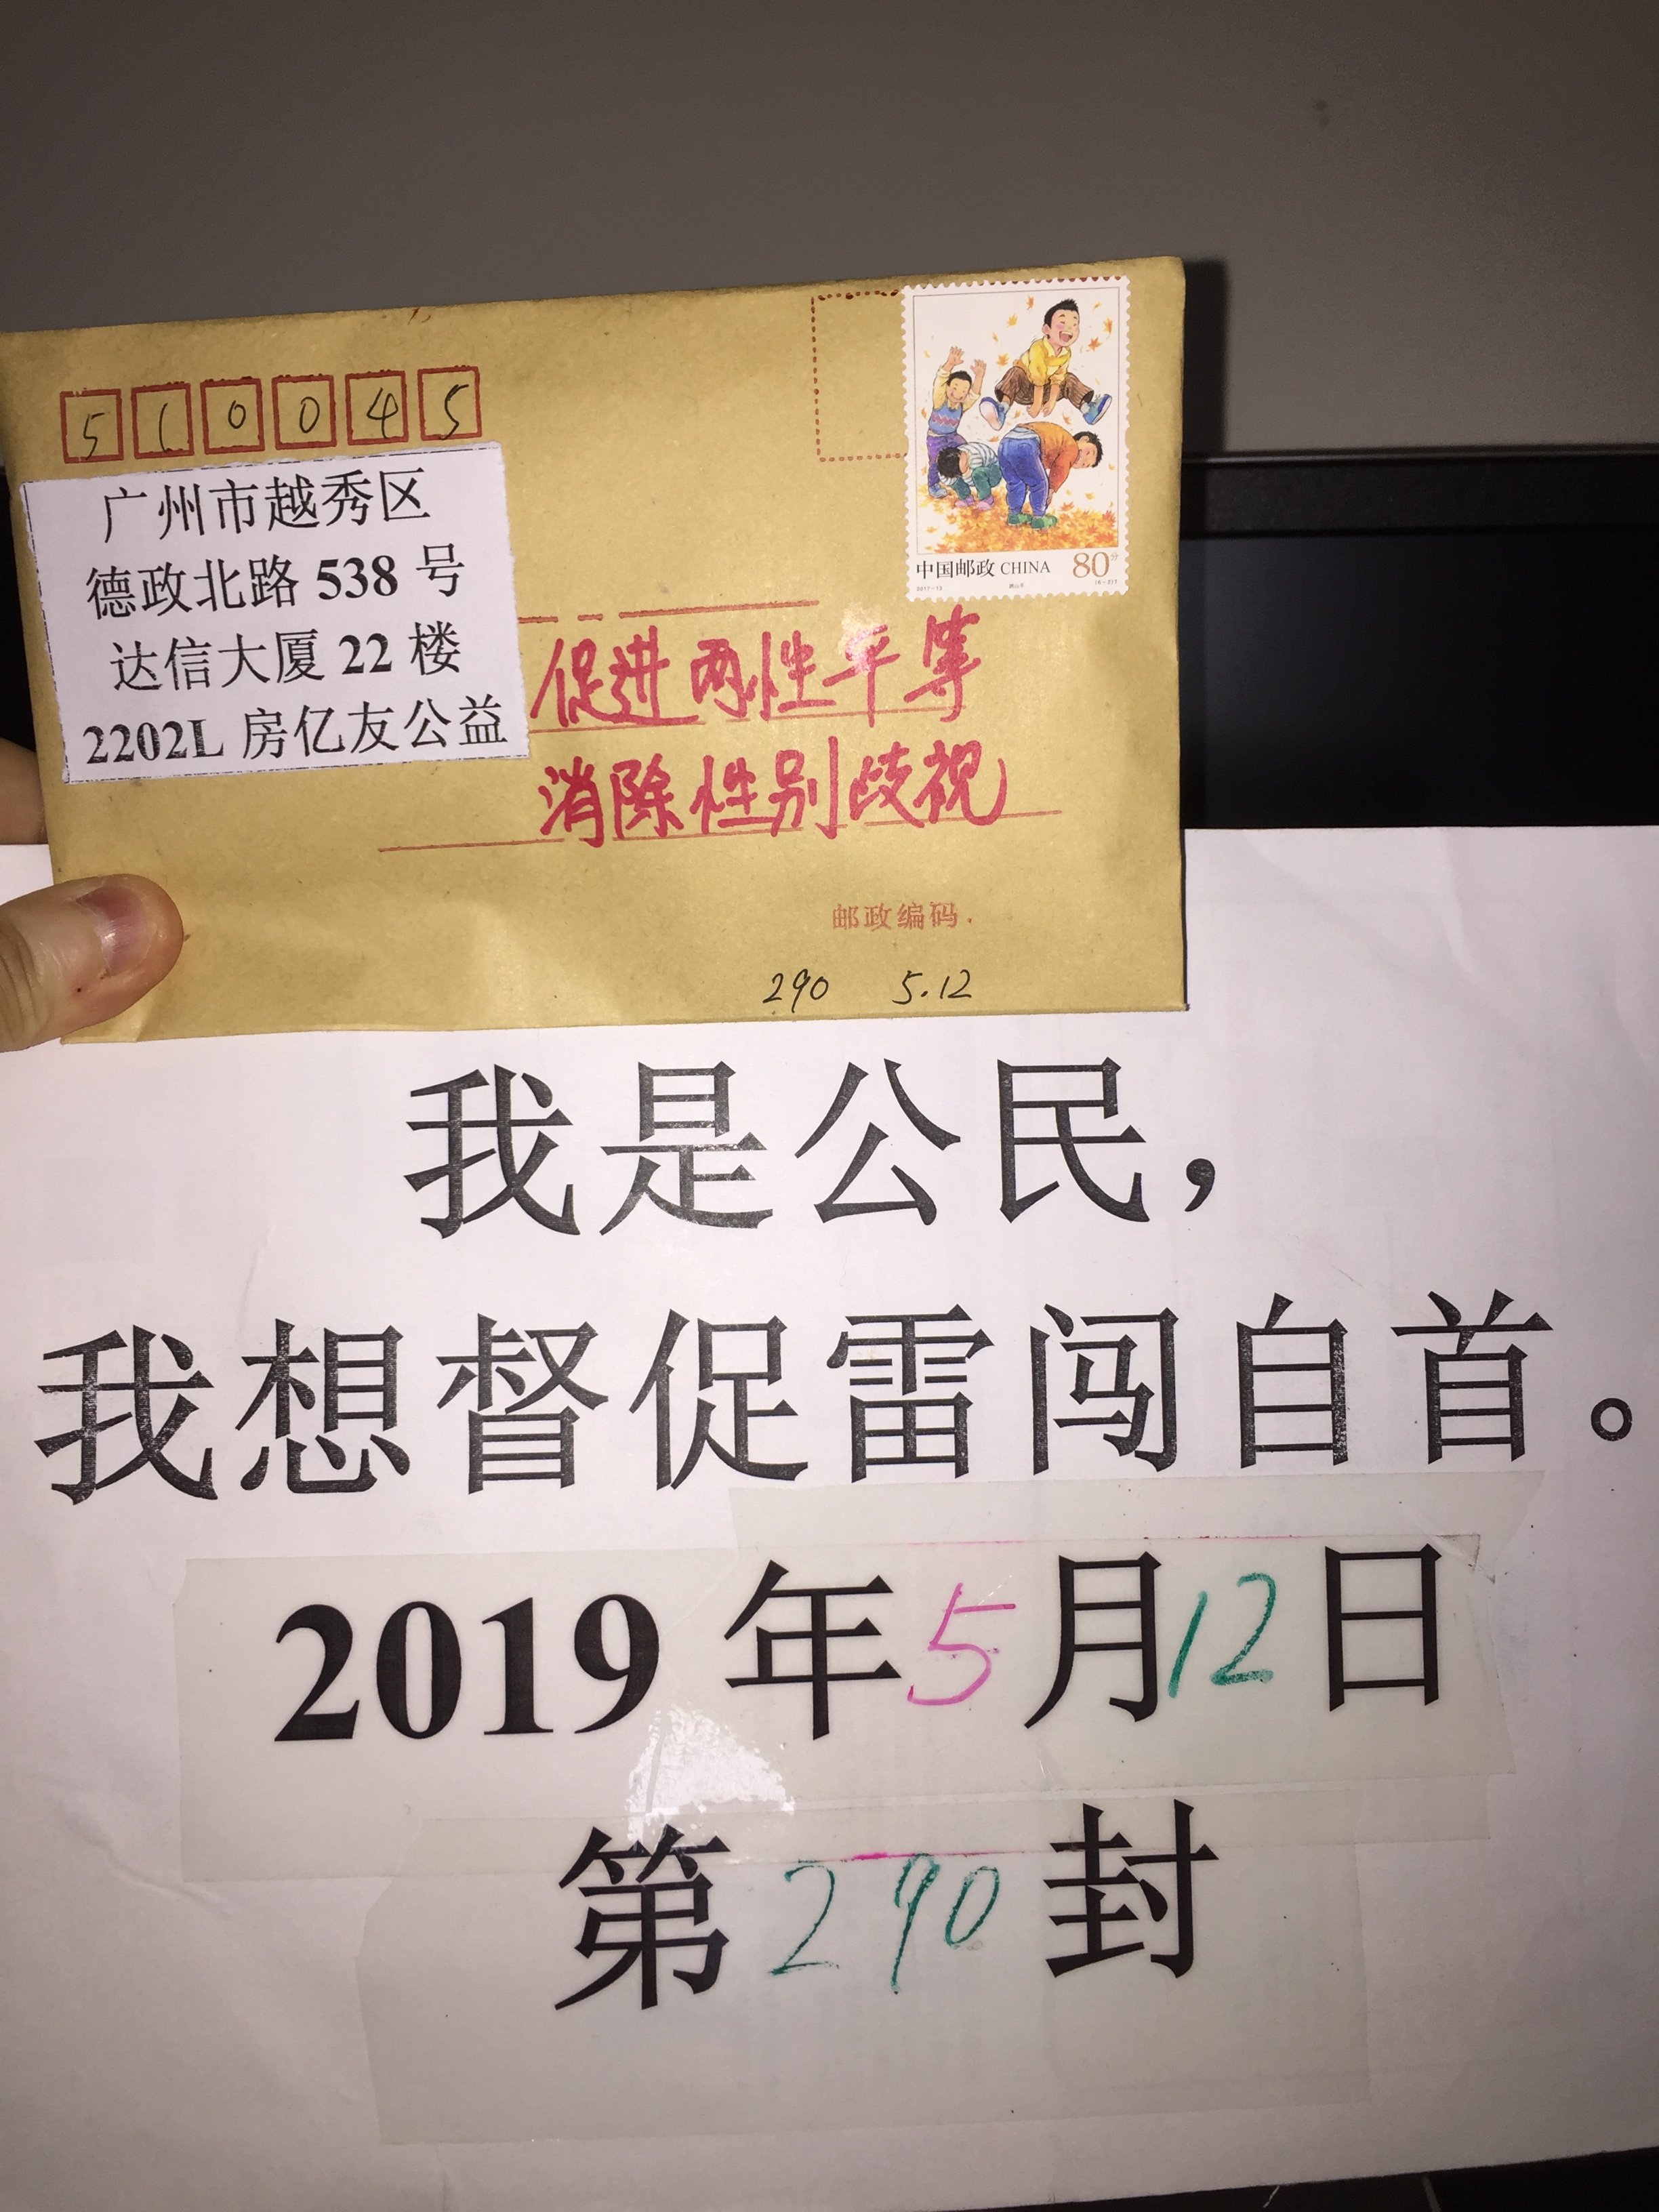 510045
广州市越秀区
德政北路 538 号
达信大厦 22 楼
2202L 房亿友公益
中国邮政 CHINA 80分
2017-13
促进两性平等
消除性别歧视
邮政编码
290 5.12
我是公民，
我想督促雷闯自首。
2019 年 5 月 12 日
第 290 封